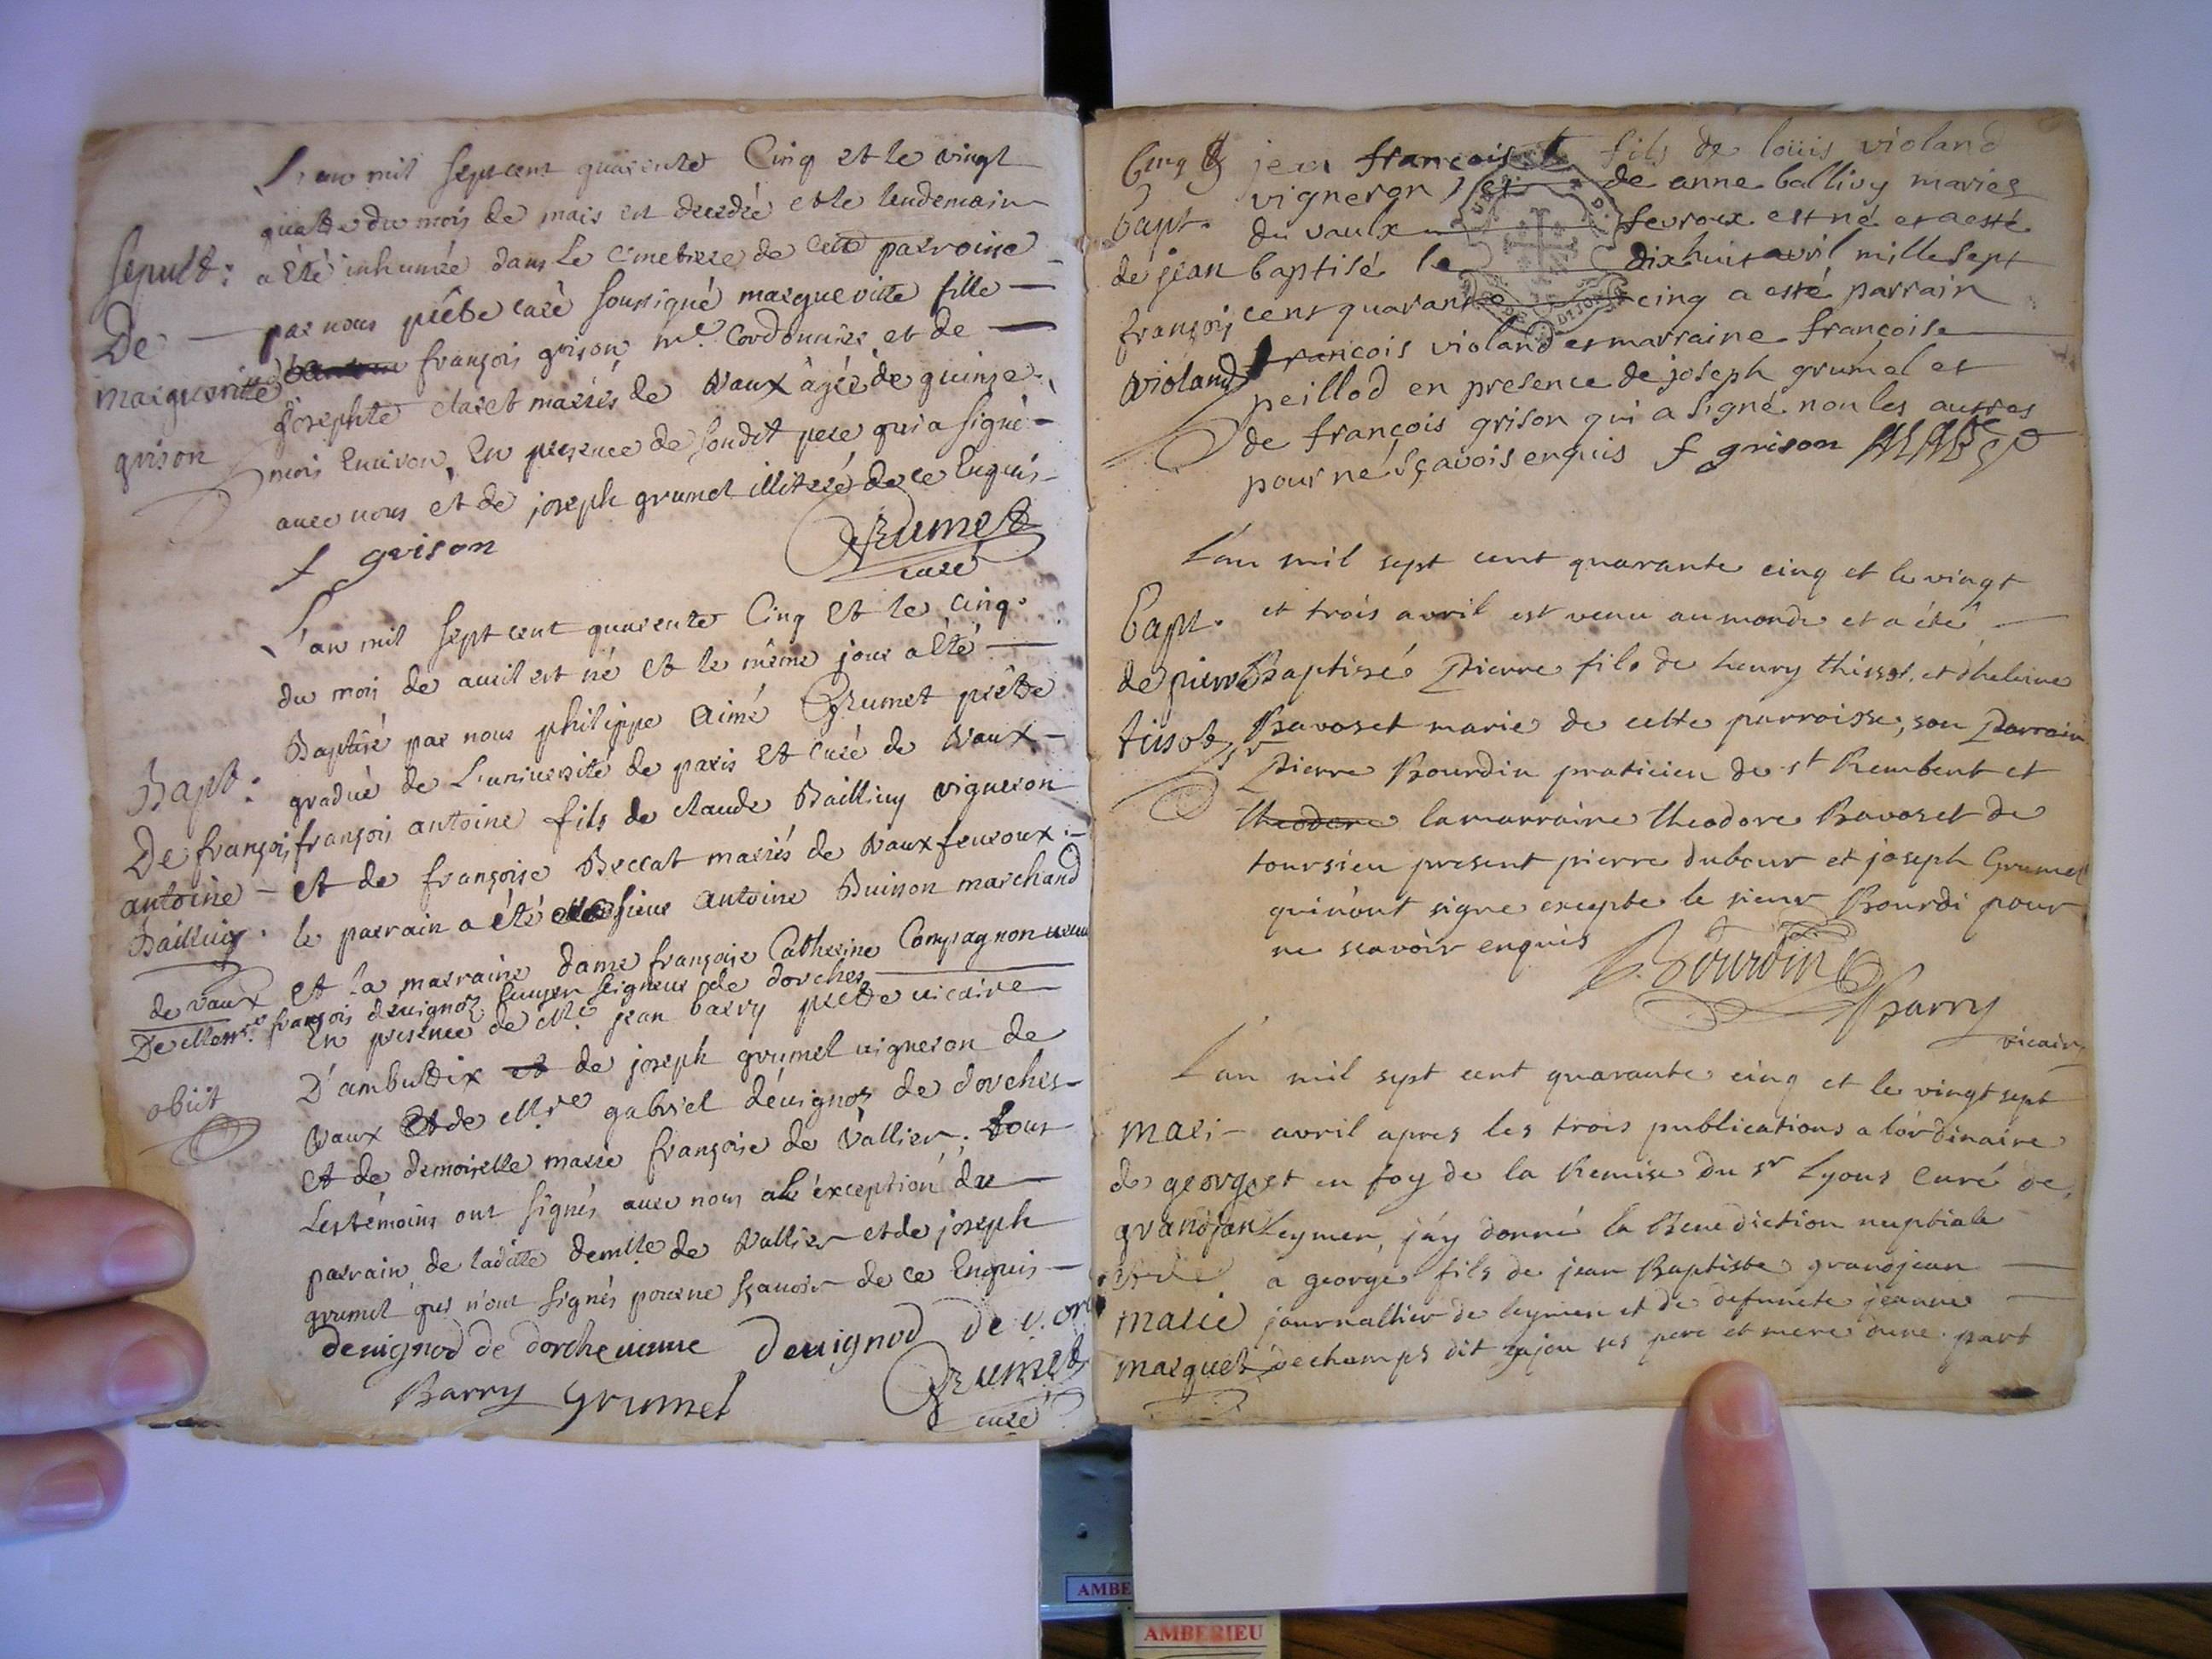 L'an mil sept cent quarente Cinq et le vingt
quattre du mois de mars est decedée et le lendemain
a été inhumée dans le Cimetiere de cette parroisse
par nous prêtre curé soussigné margueritte fille
françois grison me. Cordonnier et de
josephte claret mariés de Vaux âgée de quinze
mois Environ, En presence de sondit pere qui a signé
avec nous et de joseph grumel illitteré de ce Enquis
f grison
Grumet
curé
Sepult:
De
margueritte
grison
L'an mil sept cent quarente Cinq Et le cinq
du mois de avril est né Et le même jour a Eté
Baptisé par nous philippe Aimé Grumet prêtre
gradué de L'université de paris Et Curé de Vaux
françois antoine fils de claude Baillivy vigneron
et de françoise Beccat mariés de Vaux fevroux
le parrain a été sieur Antoine Buisson marchand
et la marraine dame françoise Catherine Compagnon
De Messre. françois devignoz Ecuyer seigneur de dorches
En presence de Mre. jean barry prêtre vicaire
D'ambutrix et de joseph grumel vigneron de
Vaux Et de Mre gabriel dévignoz de dorches
et de demoiselle marie françoise de Vallier. tous
Les témoins ont signés avec nous a l'éxception du
parrain de laditte demlle de Vallier et de joseph
grumel qui n'ont signés pour ne sçavoir de ce Enquis
devignod de dorche Devignod De
Barry Grumel
Grumet
curé
Bapt:
De françois
antoine
Baillivy
de vaux
obiit
jean françois fils de loüis violand
vigneron et de anne ballivy maries
du vaulx fevroux est né et a esté
baptisé le dixhuit avril mille sept
cent quarante cinq a esté parrain
francois violand et marraine françoise
peillod en presence de joseph grumel et
de françois grison qui a signé non les autres
pour ne sçavois enquis f grison
Bapt.
de jean
françois
violand
L'an mil sept cent quarante cinq et le vingt
et trois avril est venu au monde et a été
Baptisé Pierre fils de henry thissot et d'heleine
Bavoset marie de cette parroisse, son Parrain
sr Pierre Bourdin praticien de st Rembert et
theodore la marraine theodore Bavoset de
toursieu present pierre dubour et joseph Grumel
qui n'ont signe excepte le sieur Bourdi pour
ne scavoir enquis
Bourdin
Barry
vicair
Bapt.
de pierre
tisot
L'an mil sept cent quarante cinq et le vingt sept
avril apres les trois publications a l'ordinaire
et en foy de la Remise du sr Lyons Curé de
Leymen, j'ay donné la Benediction nuptiale
a george fils de jean Baptiste grandjean
journallier de leymen et de defuncte jeanne
dechamps dit ses pere et mere dune part
Mari
de george
grandjan
et de
marie
marguet
AMBE
AMBERIEU